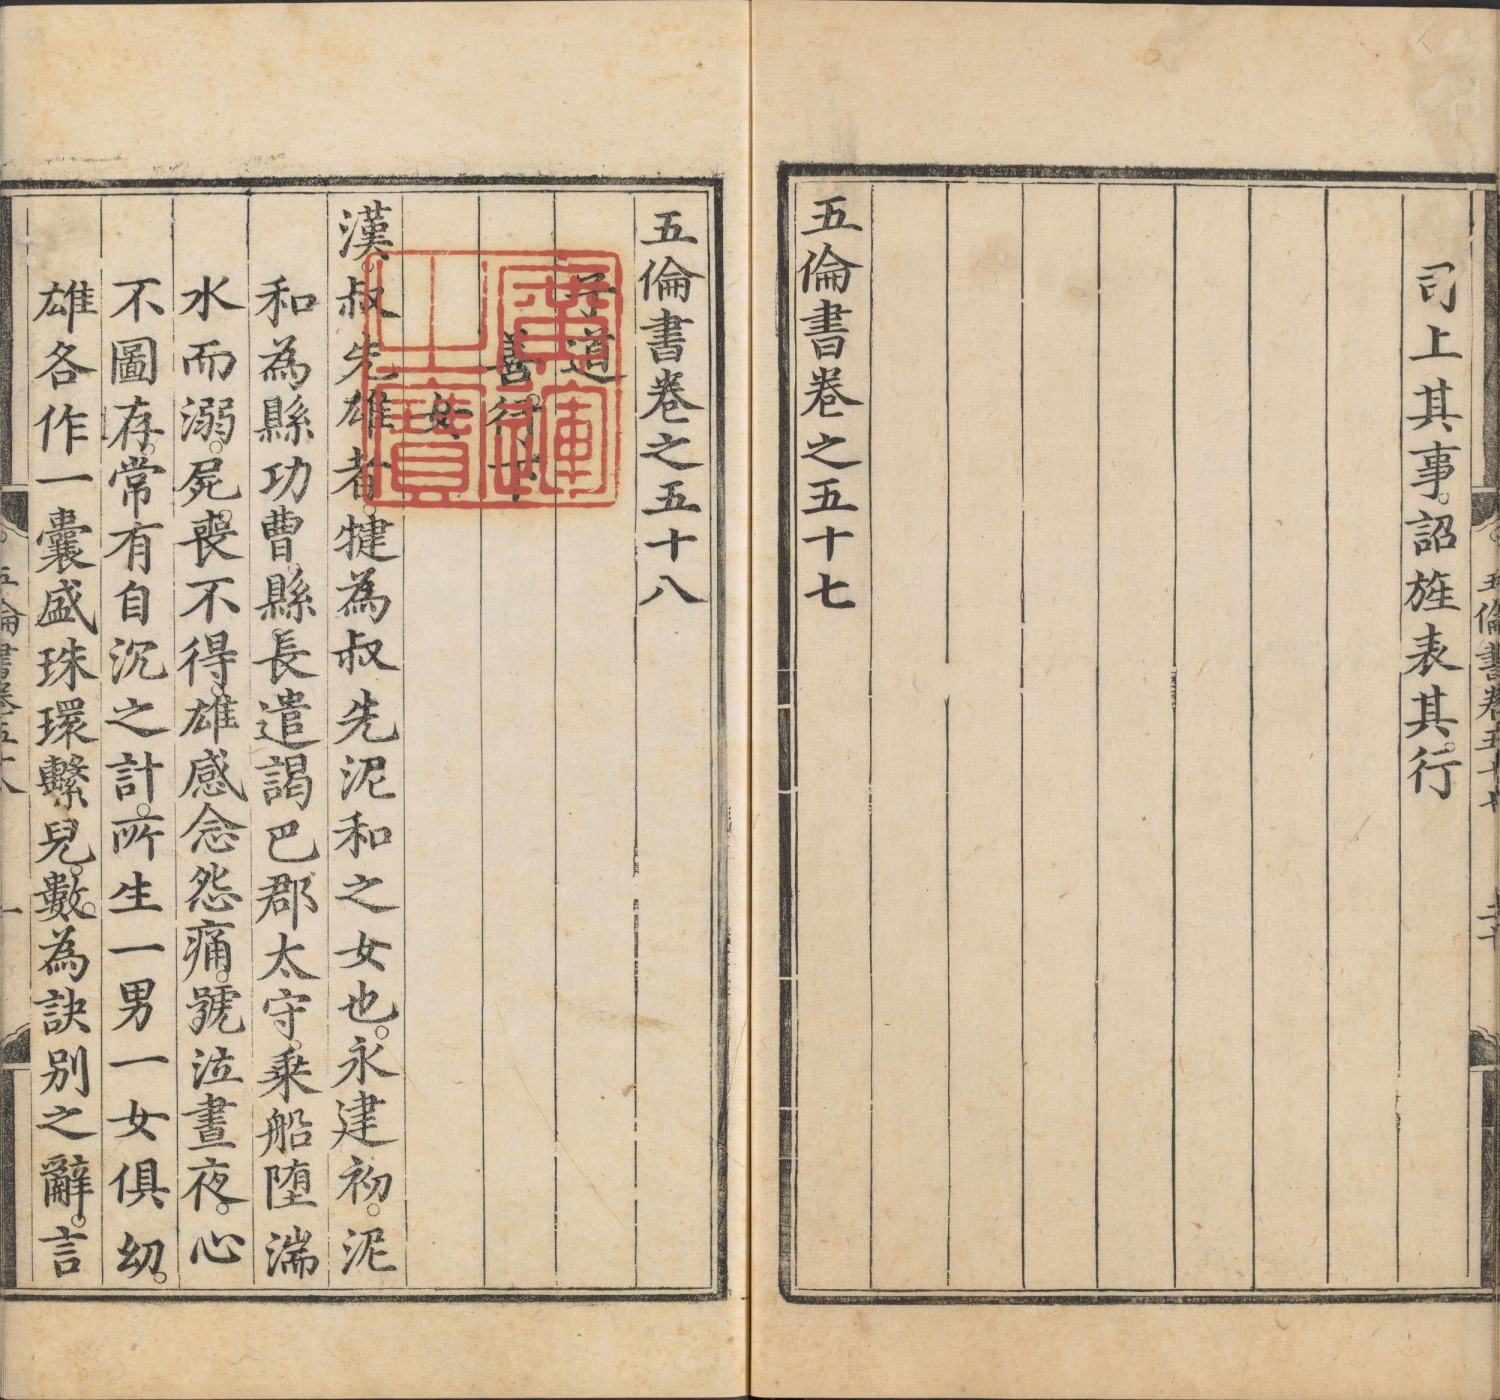 司上其事。詔旌表其行
五倫書卷之五十七
五倫書卷之五十八
子道
善行下
女
漢。叔先雄者。犍為叔先泥和之女也。永建初。泥
和為縣功曹。縣長遣謁巴郡太守。乗船堕湍
水而溺。屍喪不得。雄感念怨痛。號泣晝夜。心
不圖存。常有自沉之計。所生一男一女俱幼。
雄各作一囊盛珠環繫兒。數為訣別之辭。言
廣運之寶
五倫書卷五十七
五倫書卷五十八
一